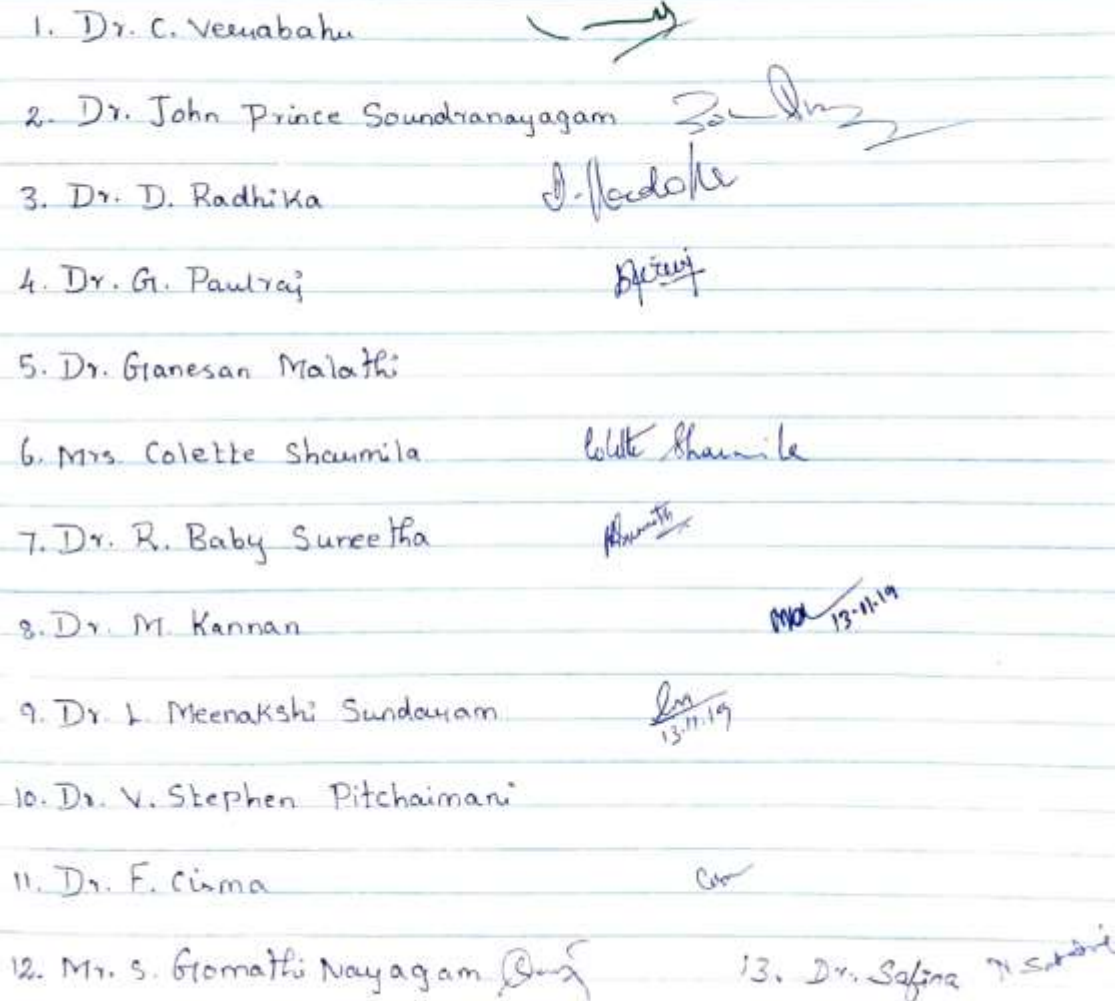 1. Dr. C. Veerabahu
2. Dr. John Prince Soundranayagam
3. Dr. D. Radhika
4. Dr. G. Paulraj
5. Dr. Ganesan Malathi
6. Mrs. Colette Sharmila Colette Sharmila
7. Dr. R. Baby Suneetha
8. Dr. M. Kannan 13-11-19
9. Dr. L. Meenakshi Sundaram
13.11.19
10. Dr. V. Stephen Pitchaimani
11. Dr. F. Cisma
12. Mr. S. Gomathi Nayagam 13. Dr. Safina